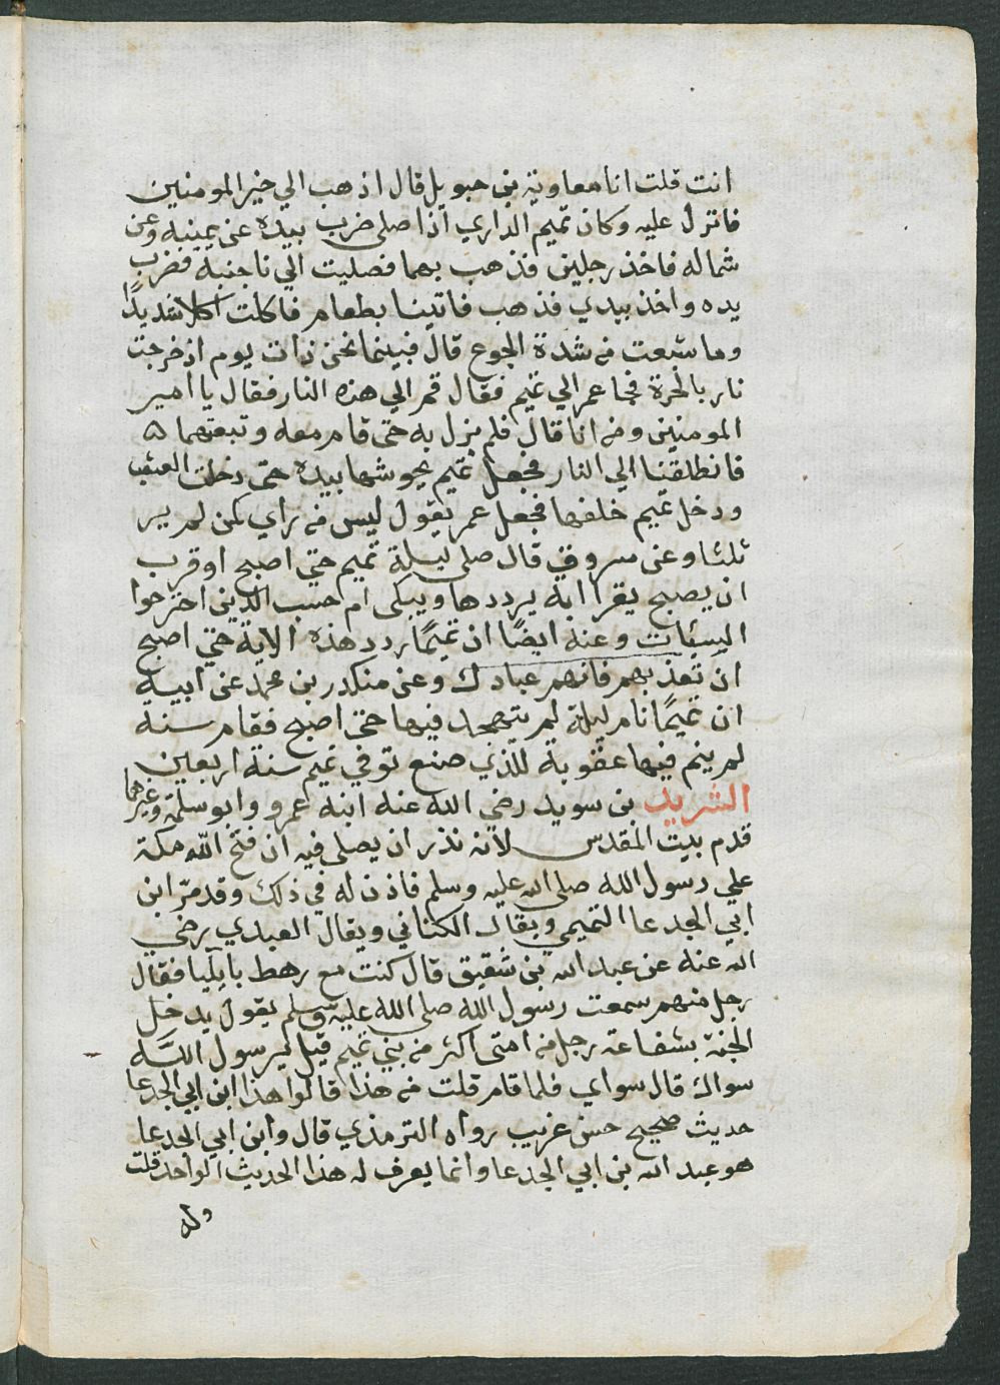 انت قلت انا معاوية بن حبويل قال اذهب الي خير المومنين
فانزل عليه وكان تميم الداري اذا صلى ضرب بيده عن يمينه وعن
شماله فاخذ رجلين فذهب بهما فصليت الي ناجنبه فضرب
يده واخذ بيدي فذهب فاتينا بطعام فاكلت اكلا شديدًا
وما شبعت من شدة الجوع قال فبينما نحن ذات يوم اذ خرجت
نار بالحرة فجا عمر الي تميم فقال قم الي هذه النار فقال يا امير
المومنين ومن انا قال فلم يزل به حتى قام معه وتبعتهما ه
فانطلقنا الي النار فجعل تميم يحوشها بيده حتى دخلت الشعب
ودخل تميم خلفها فجعل عمر يقول ليس من راي كمن لم ير
ثلثا وعن مسروق قال صلى ليلة تميم حتي اصبح او قرب
ان يصبح يقرا اية يرددها ويبكى ام حسب الذين اجترحوا
السيئات وعنه ايضًا ان تميمًا ردد هذه الاية حتي اصبح
ان تعذبهم فانهم عبادك وعن منكدر بن محمد عن ابيه
ان تميمًا نام ليلة لم يتهجد فيها حتى اصبح فقام سنة
لم ينم فيها عقوبة للذي صنع توفي تميم سنة اربعين
الشريد بن سويد رضي الله عنه ابنه عمرو وابو سلمة وغيرهما
قدم بيت المقدس لانه نذر ان يصلى فيه ان فتح الله مكة
علي رسول الله صلى الله عليه وسلم فاذن له في ذلك وقد مرّ ابن
ابي الجدعا التميمي ويقال الكناني ويقال العبدي رضي
الله عنه عن عبد الله بن شقيق قال كنت مع رهط بايليا فقال
رجل منهم سمعت رسول الله صلى الله عليه وسلم يقول يدخل
الجنة بشفاعة رجل من امتى اكثر من بني تميم قيل يرسول الله
سواك قال سواي فلما قام قلت من هذا قالوا هذا ابن ابي الجدعا
حديث صحيح حسن غريب رواه الترمذي قال وابن ابي الجدعا
هو عبد الله بن ابي الجدعا وانما يعرف له هذا الحديث الواحد قلت
وله